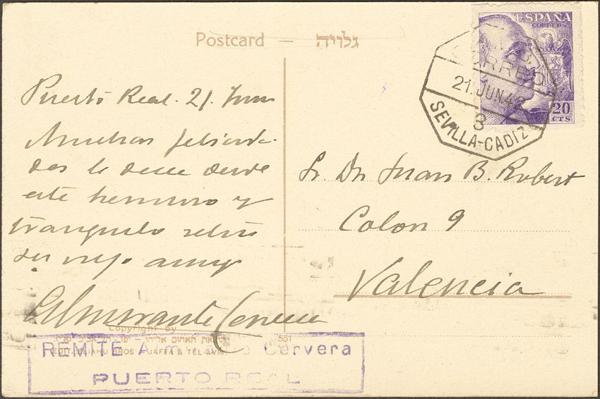 Postcard — גלויה
ESPAÑA
CORREOS
20
CTS
CORREOS
21.JUN.4
3
SEVILLA-CADIZ
Puerto Real. 21 Jun
Muchas felicida-
des le desea desde
este hermoso y
tranquilo retiro
su viejo amigo
Almirante Cervera
Sr. Dn Juan B. Robert
Colon 9
Valencia
Copyright by
551
REMITE A Cervera
PUERTO REAL